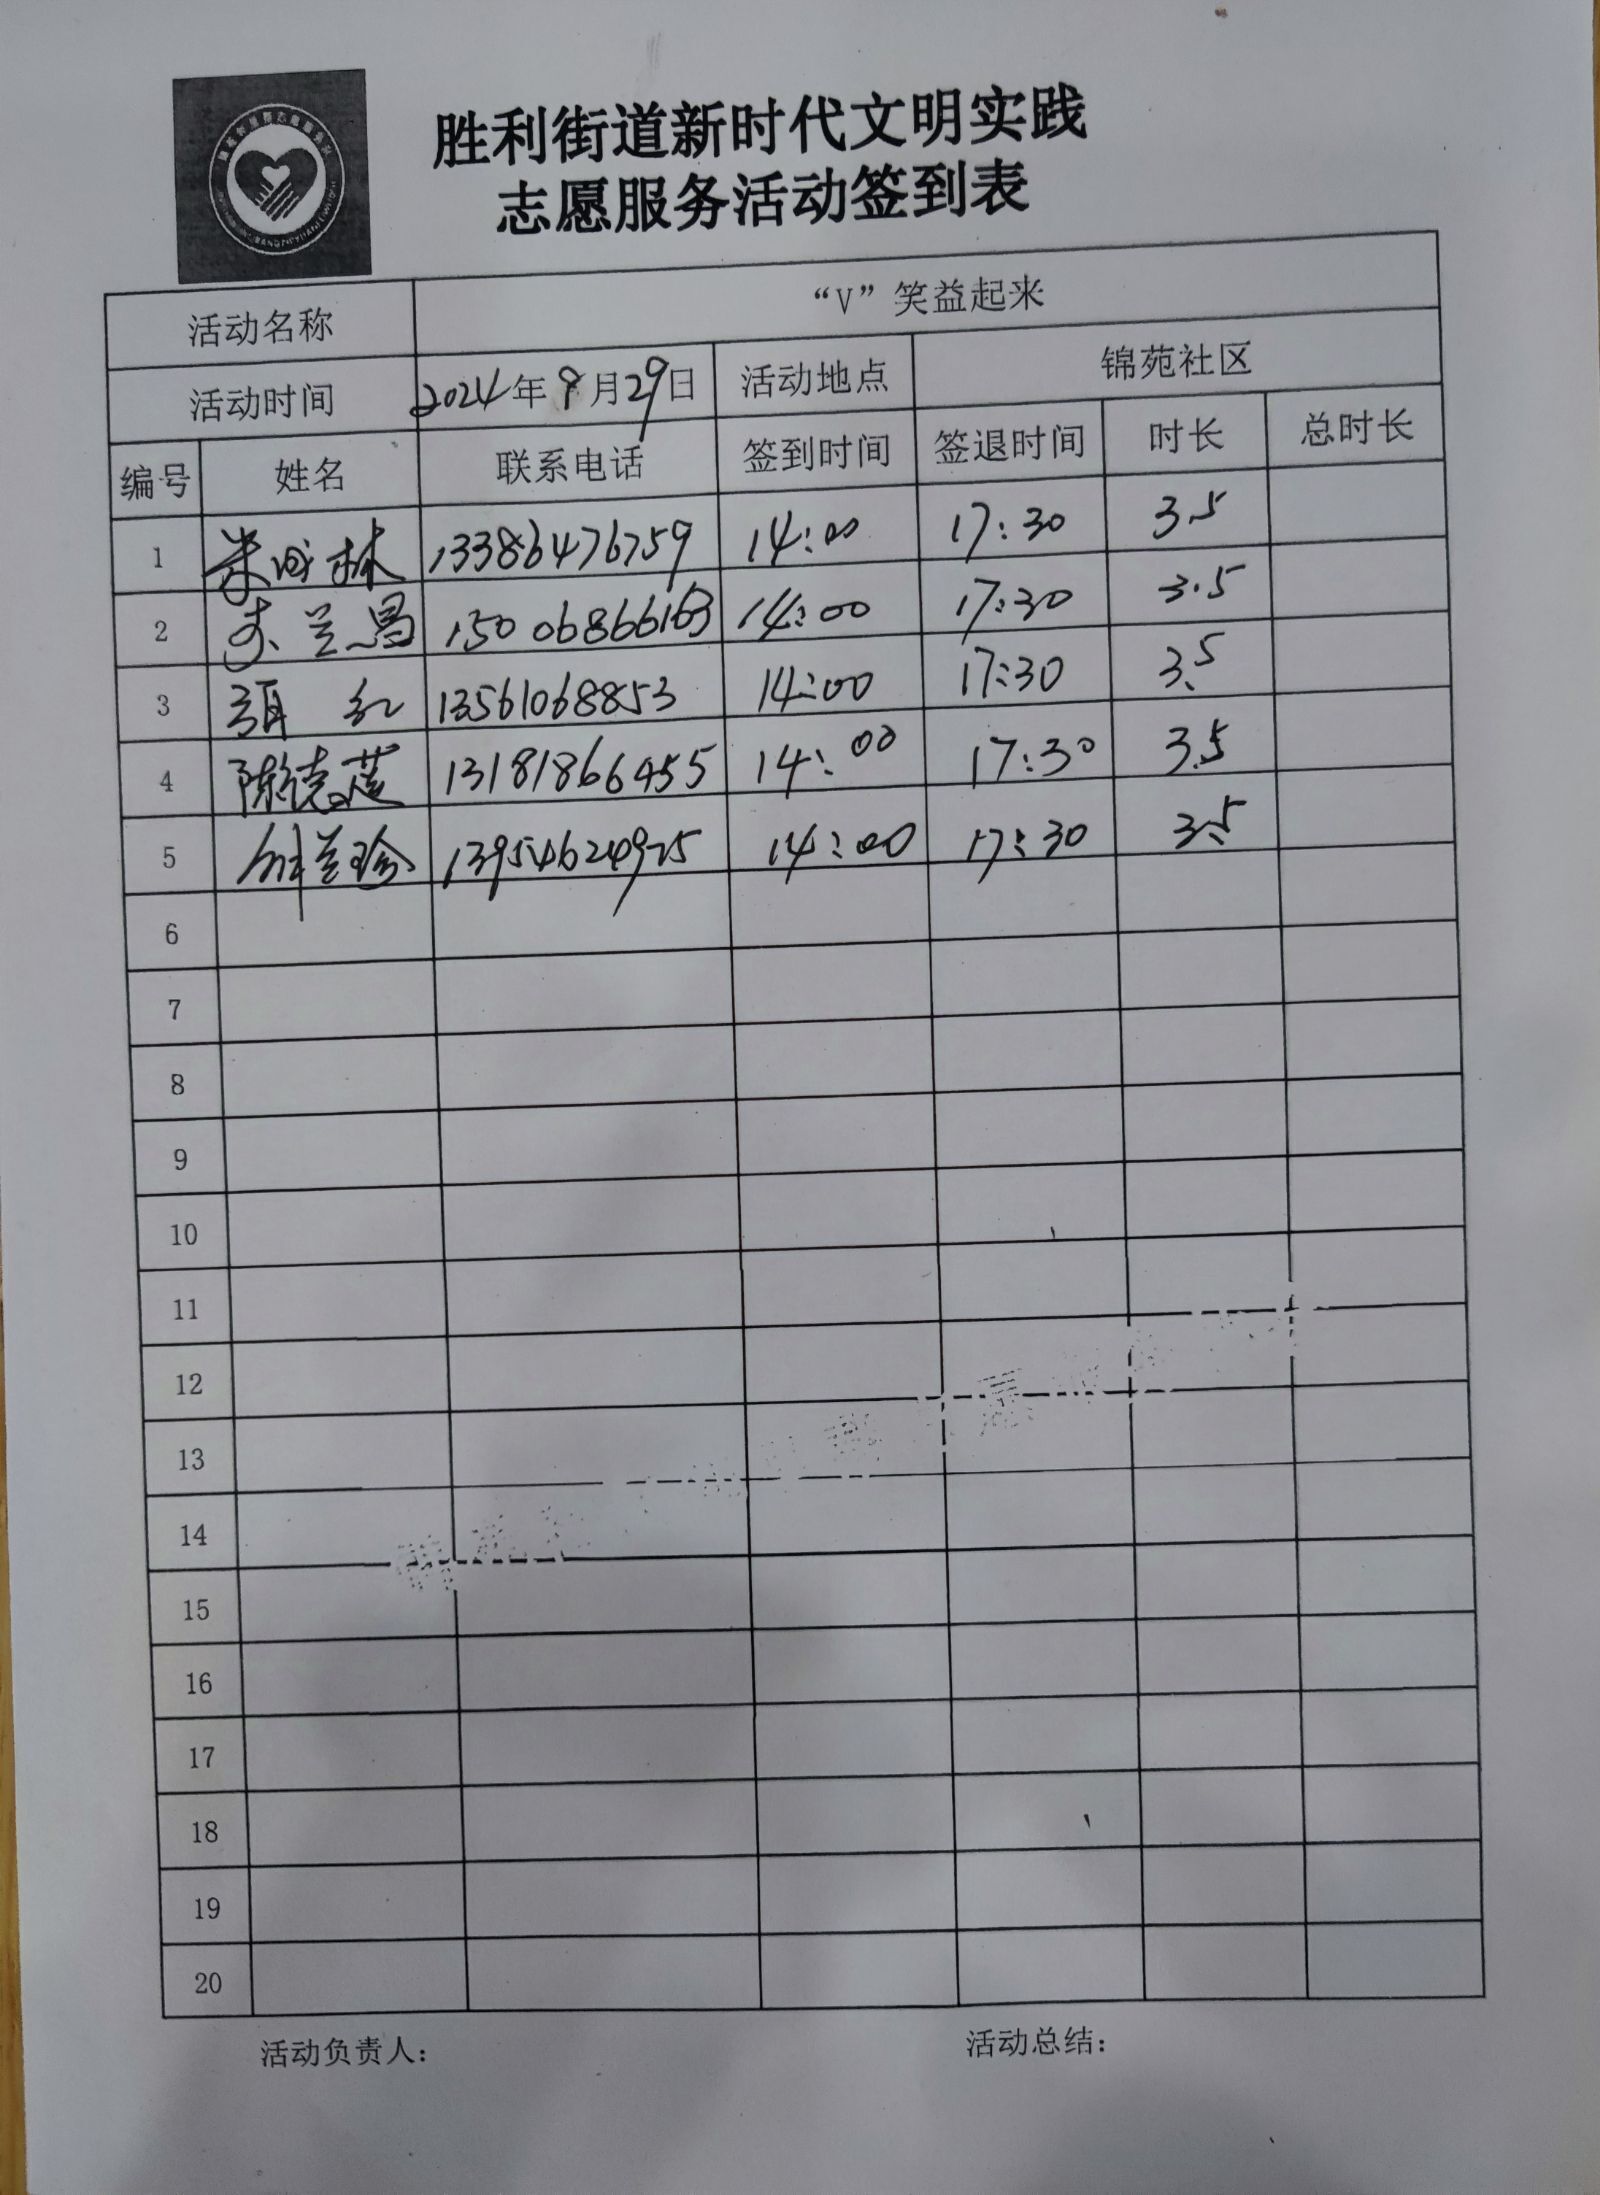 胜利街道新时代文明实践
志愿服务活动签到表
活动名称 “V”笑益起来
活动时间 2024年9月29日 活动地点 锦苑社区
编号 姓名 联系电话 签到时间 签退时间 时长 总时长
1 13386476759 14:00 17:30 3.5
2 兰 15006866163 14:00 17:30 3.5
3 红 13561068853 14:00 17:30 3.5
4 陈德莲 13181866455 14:00 17:30 3.5
5 兰珍 13954624975 14:00 17:30 3.5
6
7
8
9
10
11
12
13
14
15
16
17
18
19
20
活动负责人： 活动总结：